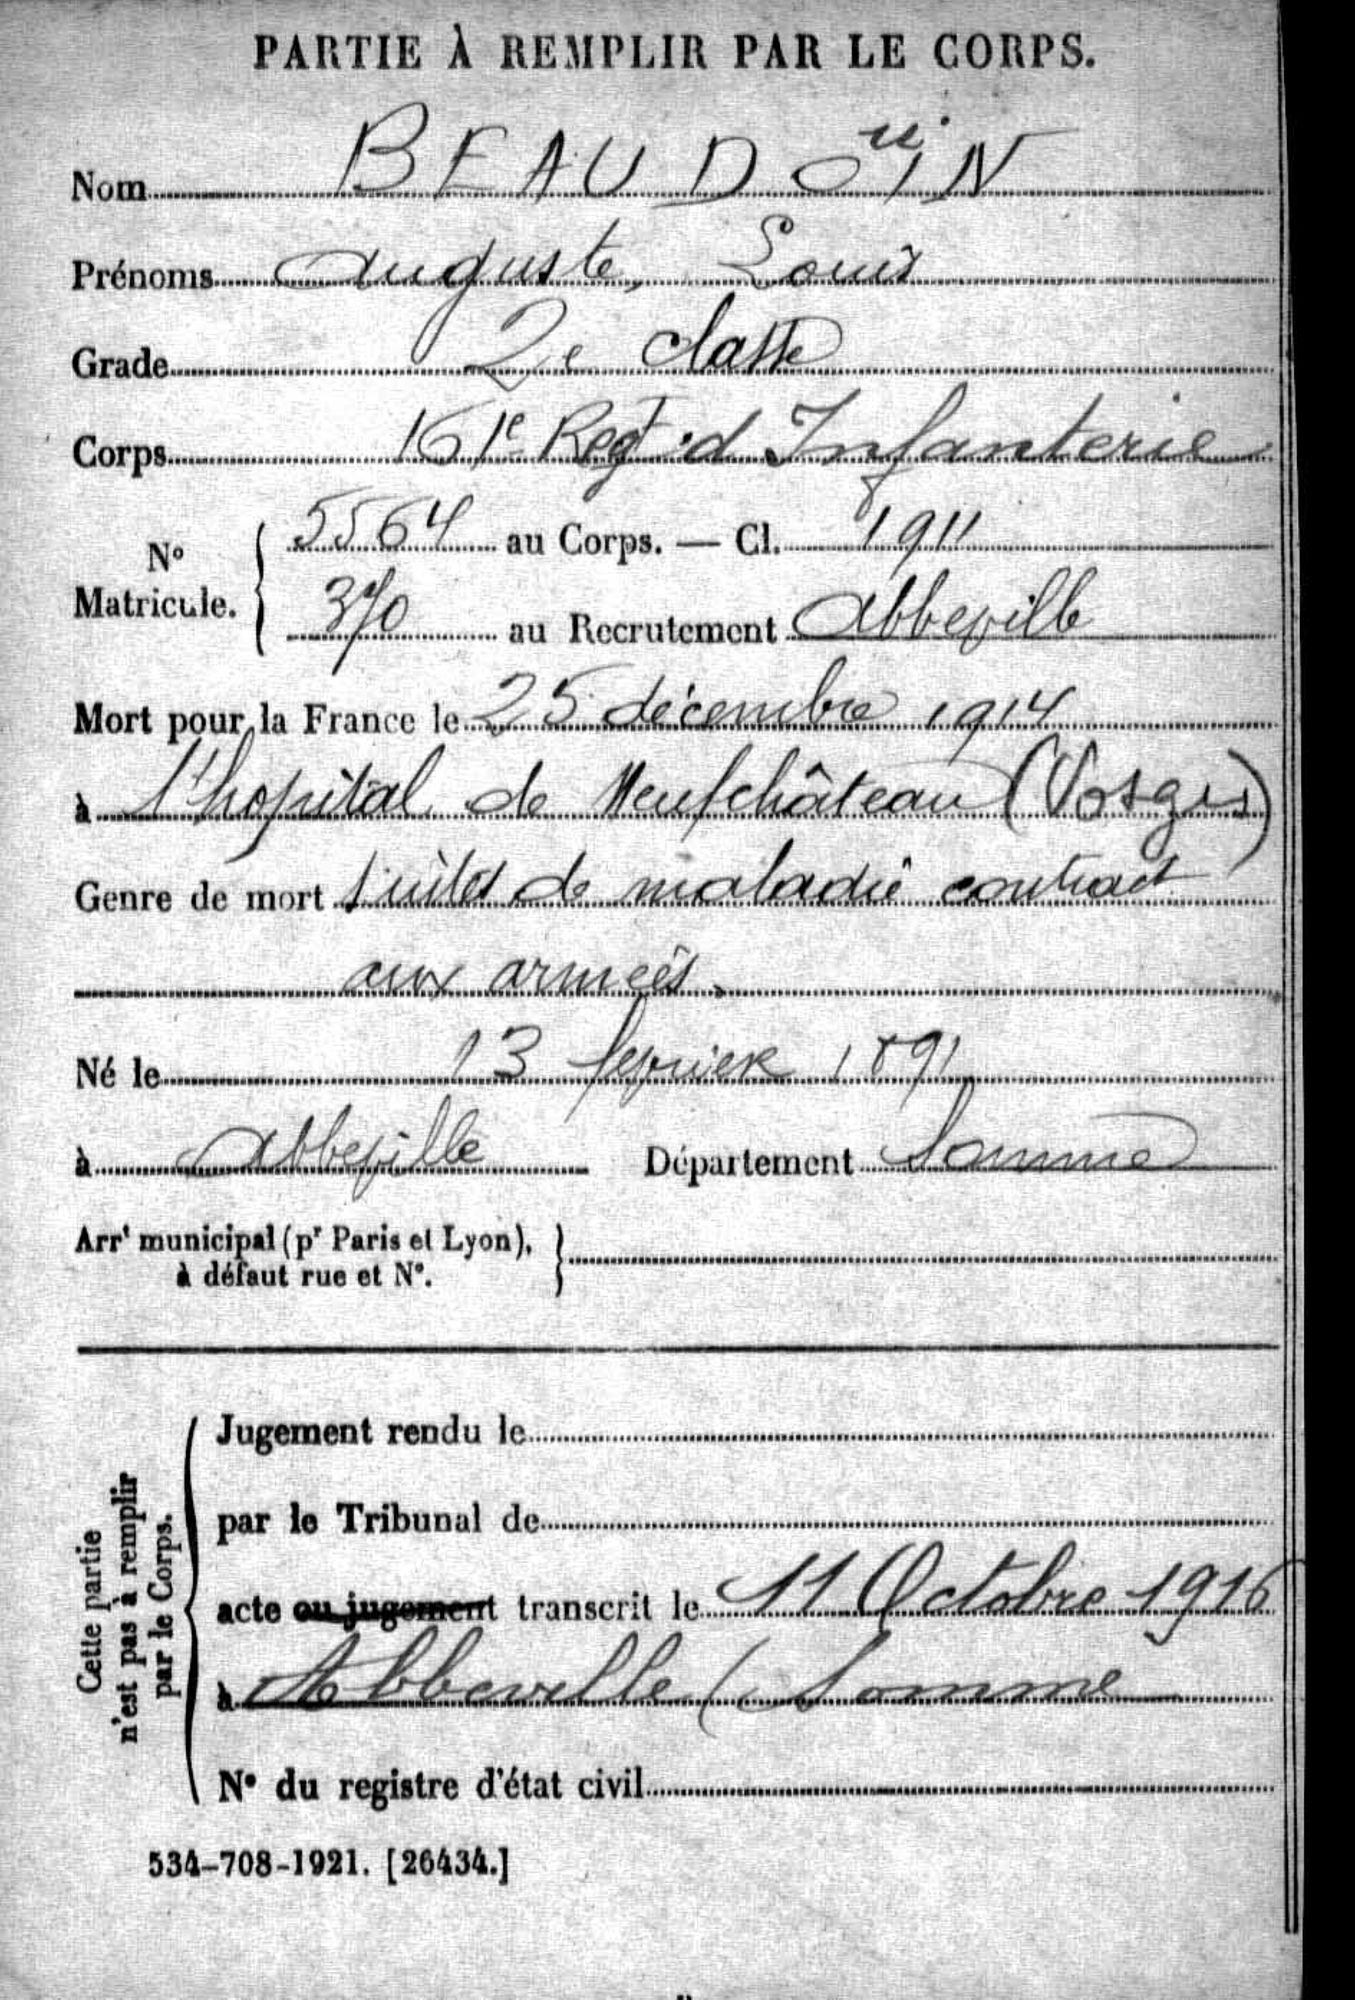 PARTIE À REMPLIR PAR LE CORPS.
Nom BEAUDOuiN
Prénoms Auguste, Louis
Grade 2e classe
Corps 161e Regt d'Infanterie
N° Matricule. { 5564 au Corps. — Cl. 1911
370 au Recrutement Abbeville
Mort pour la France le 25 décembre 1914
à l'hopital de Neufchâteau (Vosges)
Genre de mort suites de maladie contract
aux armées.
Né le 13 fevrier 1891
à Abbeville Département Somme
Arrt municipal (pr Paris et Lyon), }
à défaut rue et N°.
Cette partie
n'est pas à remplir
par le Corps.
Jugement rendu le
par le Tribunal de
acte ou jugement transcrit le 11 Octobre 1916
à Abbeville (Somme
N° du registre d'état civil
534-708-1921. [26434.]